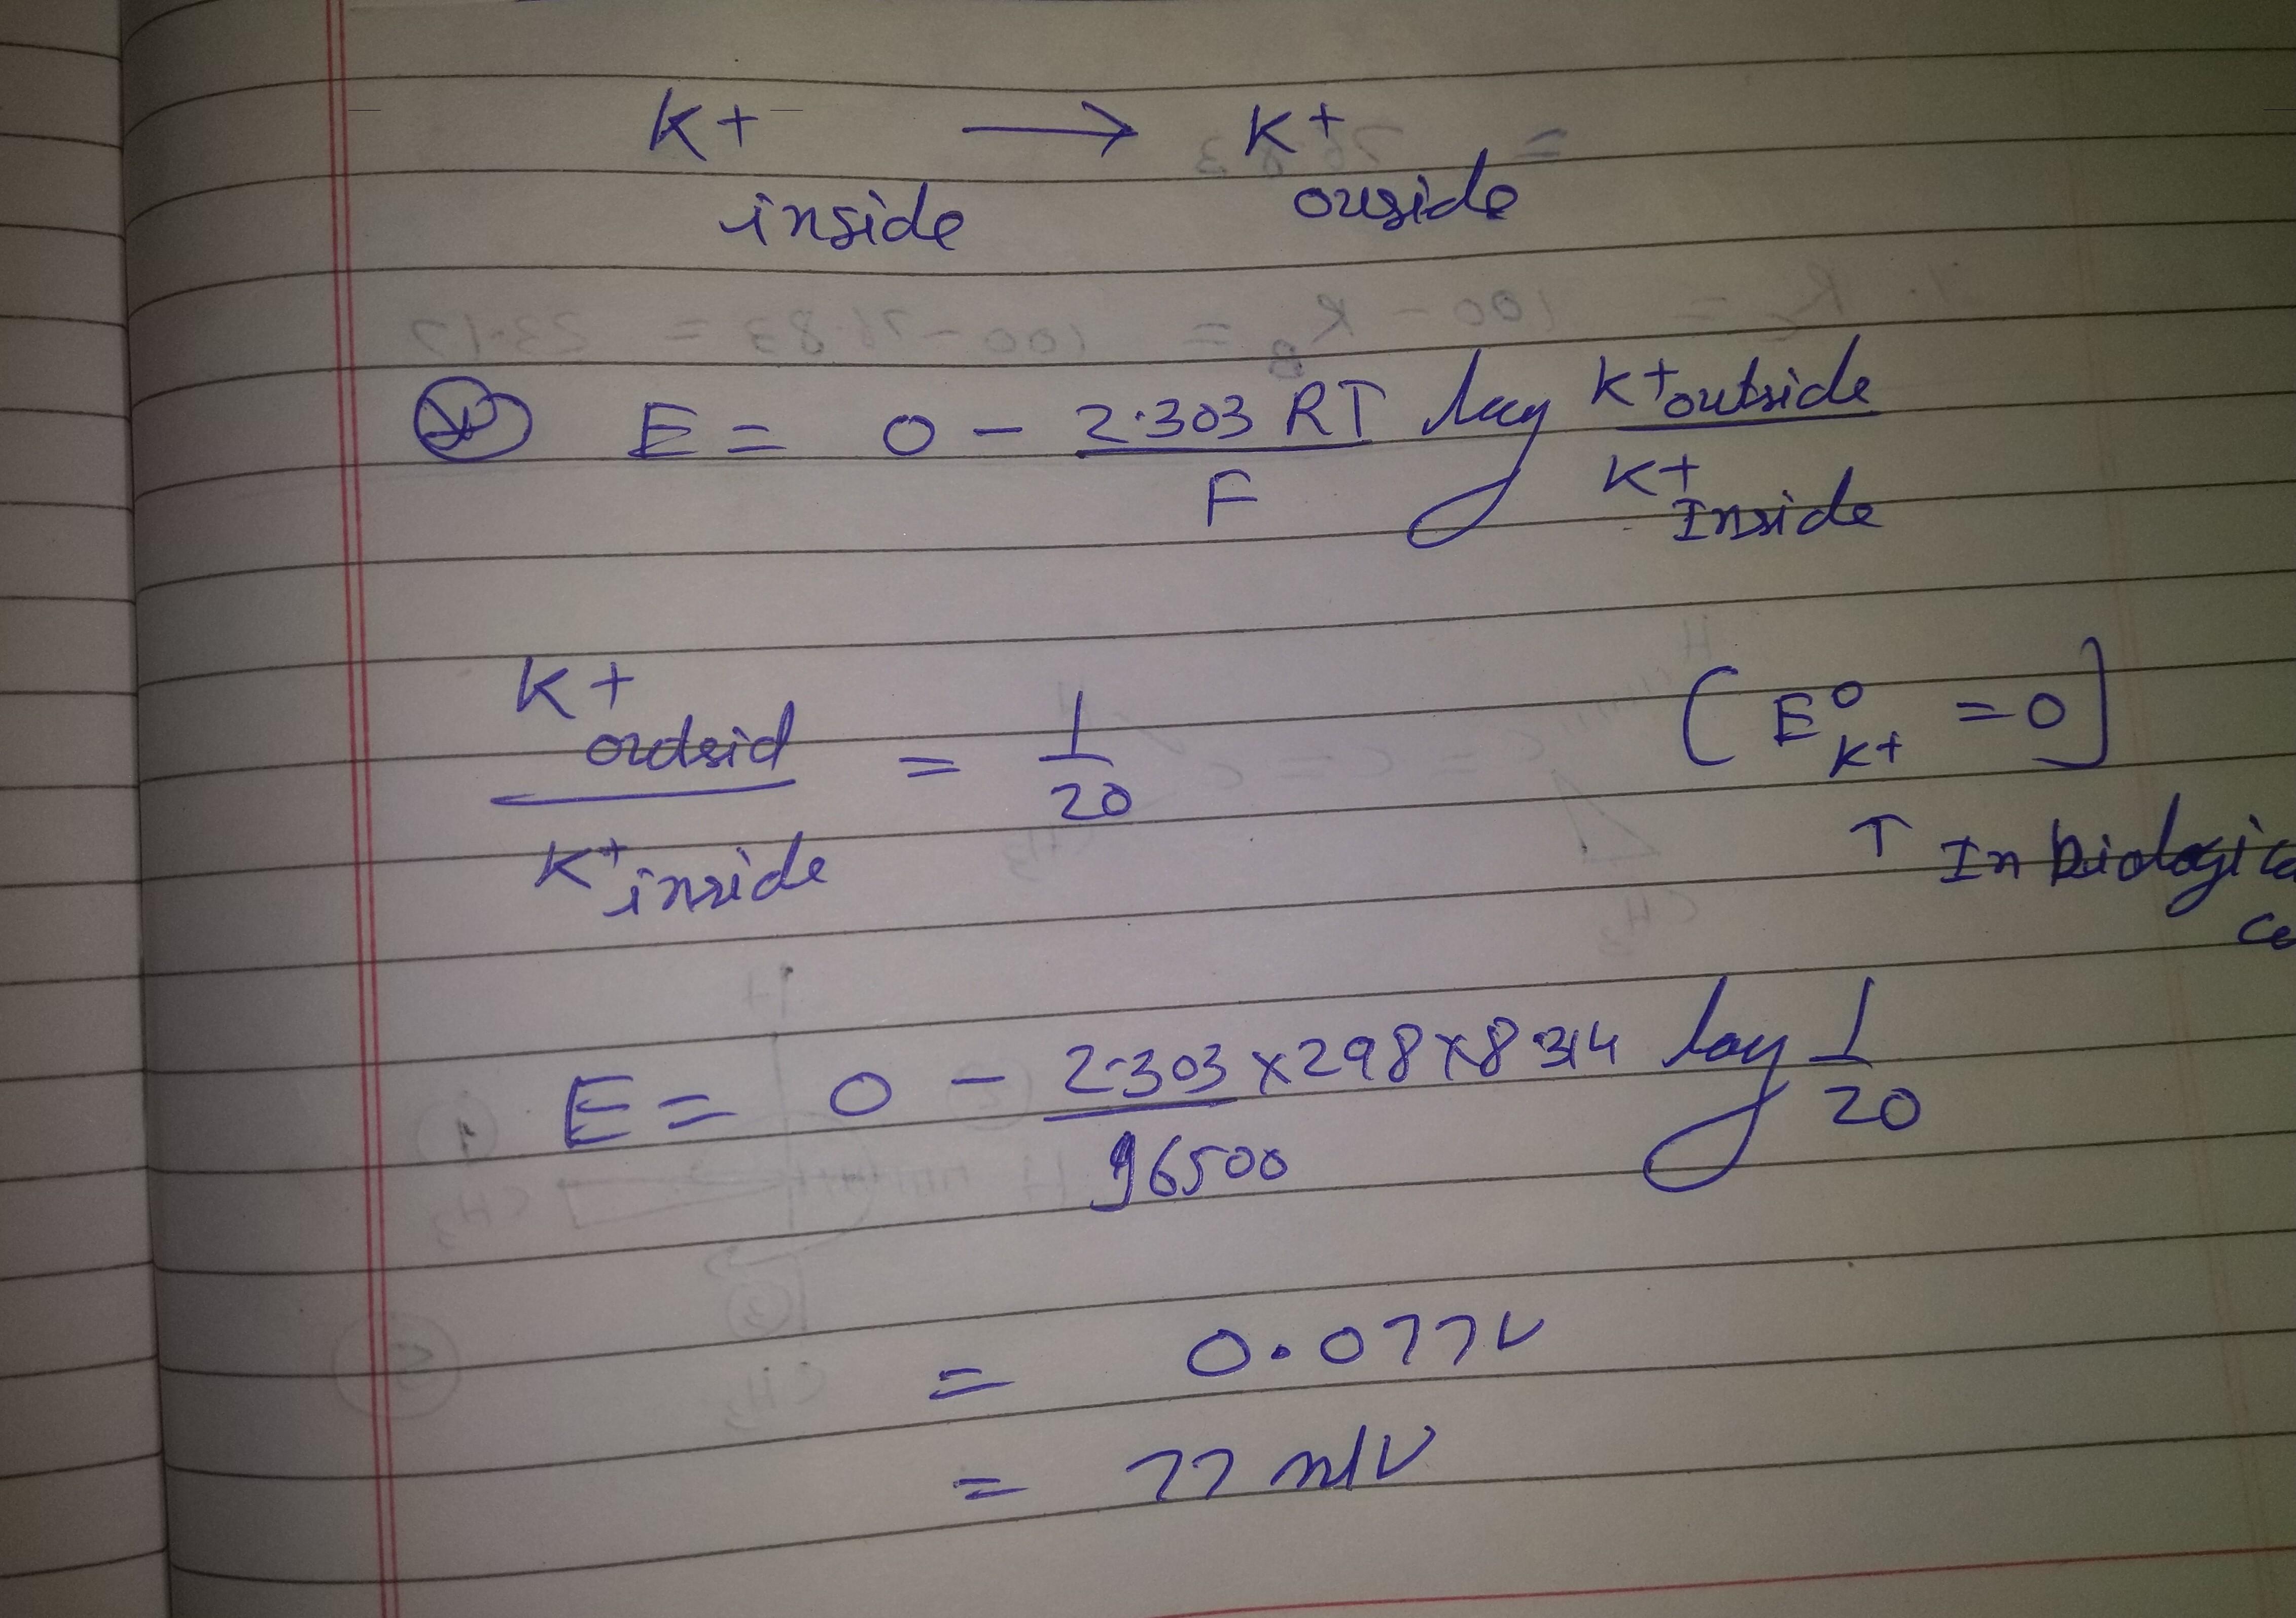 K+ → K+
inside ouside
E = 0 - 2.303 RT / F log K+outside / K+ Inside
K+ outsid / K+ inside = 1/20 [E° K+ = 0]
↑ In biologica
ce
E = 0 - 2.303 x 298 x 8.314 / 96500 log 1/20
= 0.077V
= 77 mV